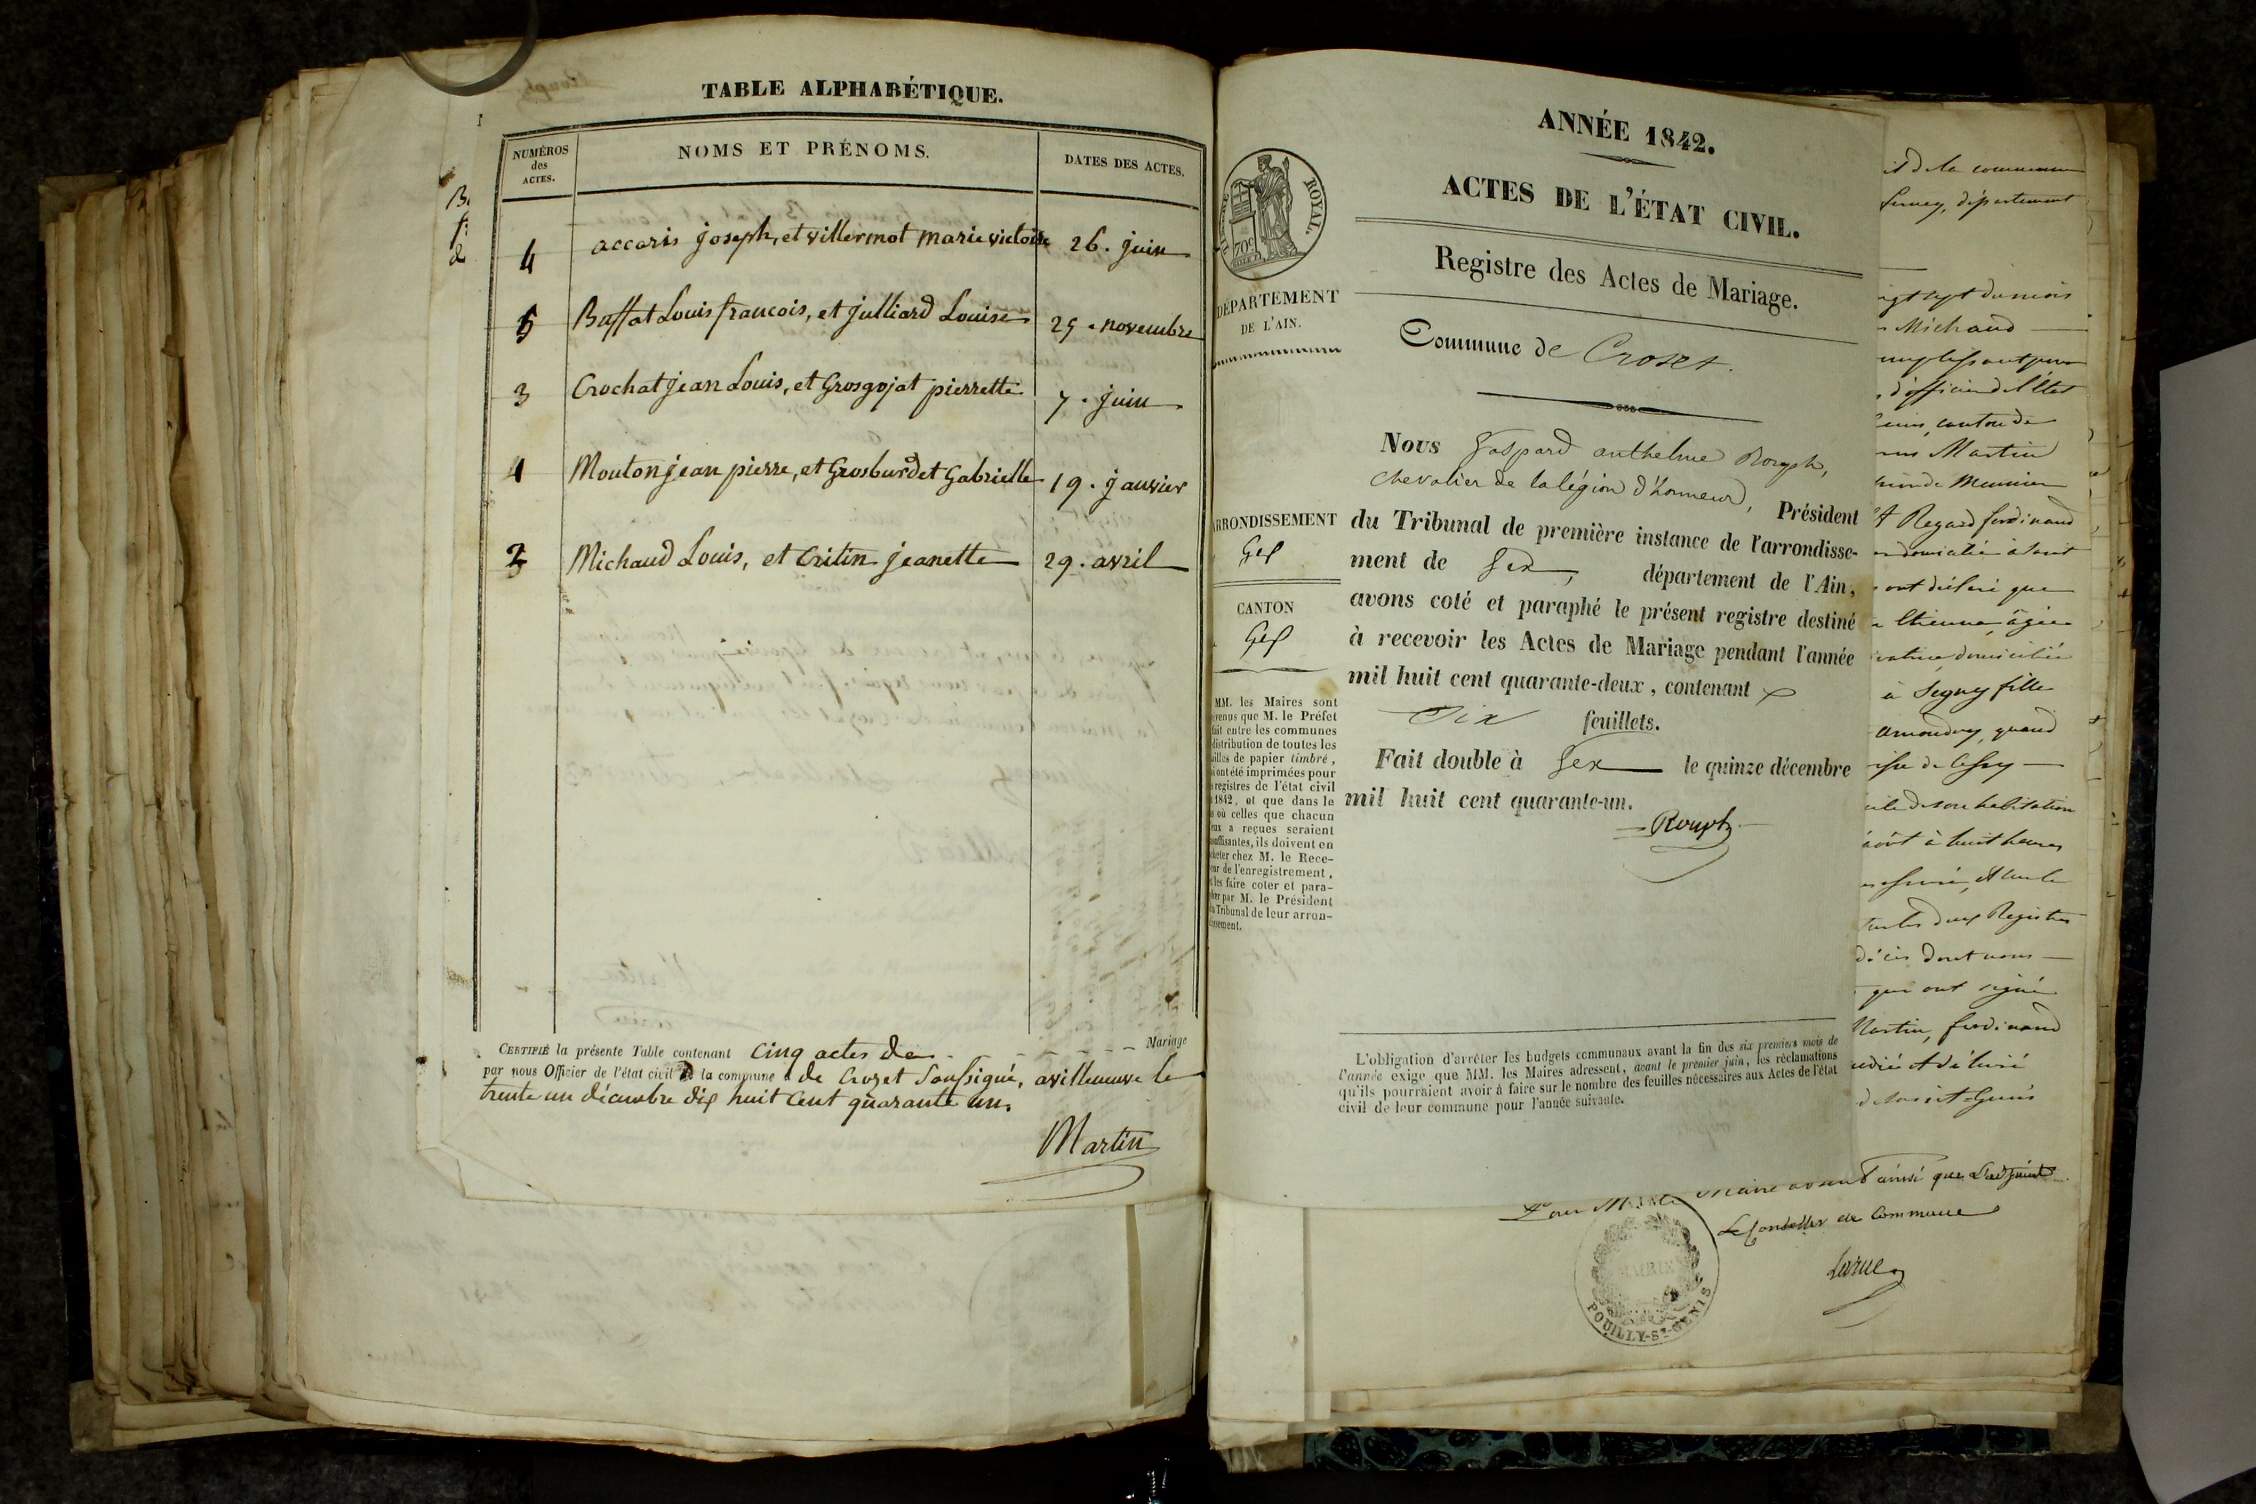 TABLE ALPHABÉTIQUE.
NUMÉROS
des
ACTES.
NOMS ET PRÉNOMS.
DATES DES ACTES.
4 accaris joseph, et villermot marie victoire 26. juin
5 Buffat Louis francois, et julliard Louise 25. novembre
3 Crochat jean Louis, et Grosgojat pierrette 7. juin
1 Mouton jean pierre, et Grosburdet Gabrielle 19. janvier
2 Michaud Louis, et Critin jeanette 29. avril
CERTIFIÉ la présente Table contenant cinq actes de Mariage
par nous Officier de l'état civil de la commune de Crozet Soussigné, a villeneuve le
trente un décembre dix huit cent quarante un.
Martin
ROYAL.
70c
DÉPARTEMENT
DE L'AIN.
ARRONDISSEMENT
Gex
CANTON
Gex
MM. les Maires sont
que M. le Préfet
fait entre les communes
distribution de toutes les
de papier timbré,
ont été imprimées pour
registres de l'état civil
1842, et que dans le
où celles que chacun
a reçues seraient
ils doivent en
chez M. le Rece-
de l'enregistrement,
les faire coter et para-
par M. le Président
Tribunal de leur arron-
ANNÉE 1842.
ACTES DE L'ÉTAT CIVIL.
Registre des Actes de Mariage.
Commune de Crozet.
Nous Gaspard anthelme Rouph,
chevalier de la légion d'honneur, Président
du Tribunal de première instance de l'arrondisse-
ment de Gex, département de l'Ain,
avons coté et paraphé le présent registre destiné
à recevoir les Actes de Mariage pendant l'année
mil huit cent quarante-deux, contenant
Six feuillets.
Fait double à Gex le quinze décembre
mil huit cent quarante-un.
Rouph
L'obligation d'arrêter les budgets communaux avant la fin des six premiers mois de
l'année exige que MM. les Maires adressent, avant le premier juin, les réclamations
qu'ils pourraient avoir à faire sur le nombre des feuilles nécessaires aux Actes de l'état
civil de leur commune pour l'année suivante.
de la commune
fernex, département
du mois
Michaud
d'officier de l'état
canton de
Martin
Meunier
Regard ferdinand
domicilié à saint
ont déclaré que
Etienne, âgée
domiciliée
à Segny fille
quand
de son habitation
août à huit heures
les deux Registres
décès dont nous
qui ont signé
Martin, ferdinand
et délivré
de saint-Genis
Maire absent ainsi que L'adjoint
Le Conseiller de Commune
Larue
MAIRIE
POUILLY-ST-GENIS